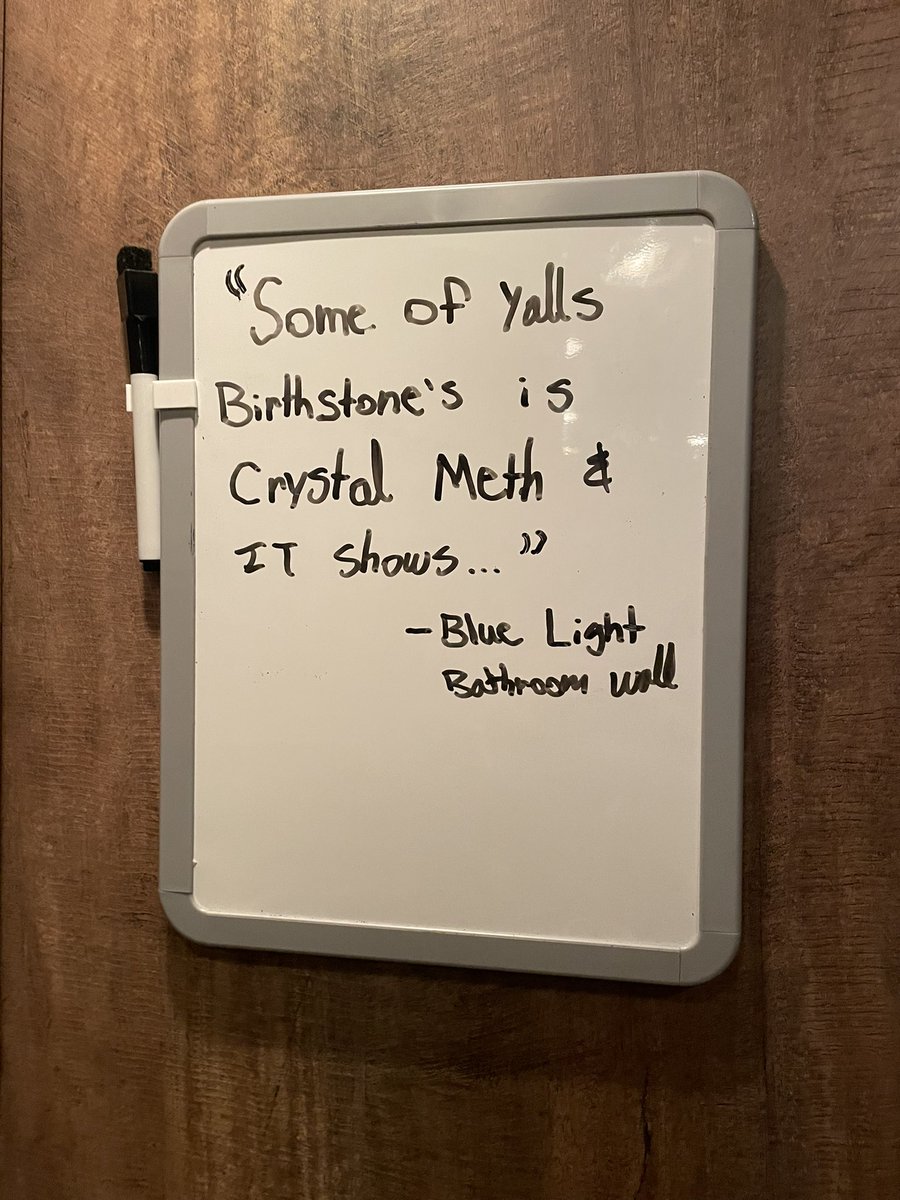 “Some of Yalls
Birthstone's is
Crystal Meth &
IT shows...”
- Blue Light
Bathroom wall